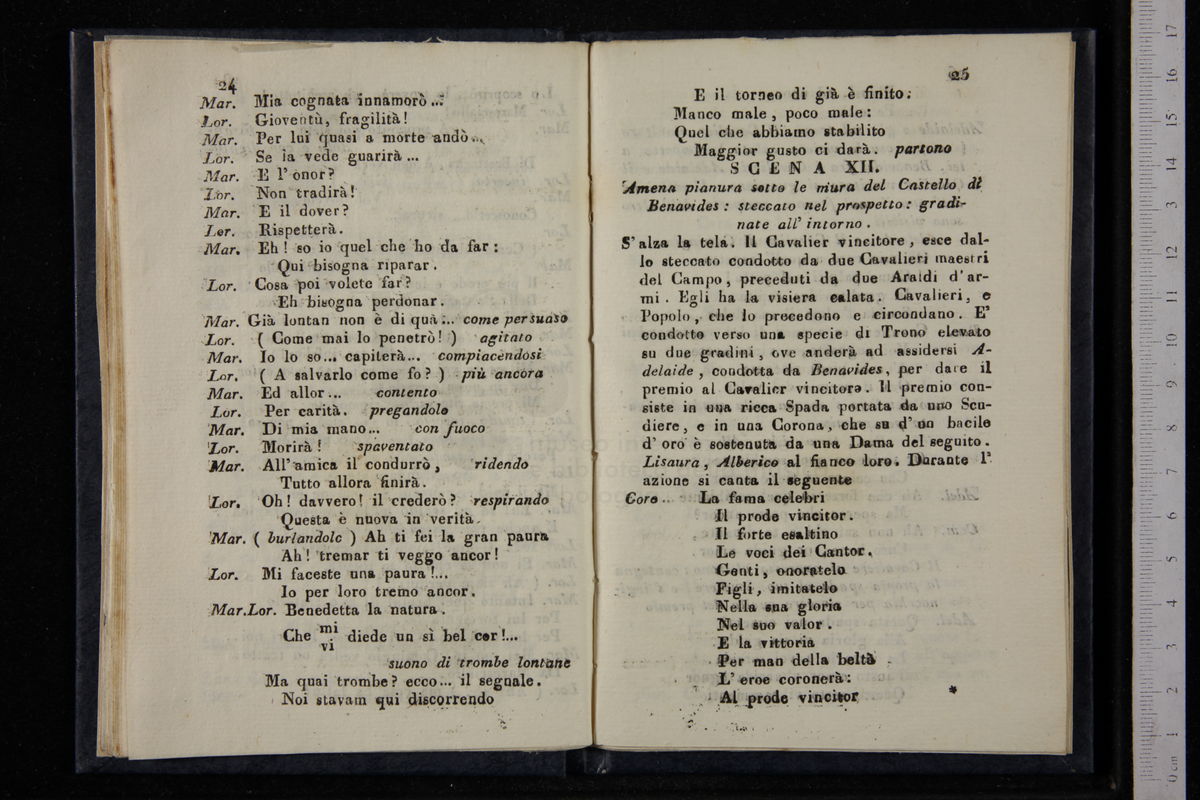 24
Mar. Mia cognata innamorò...
Lor. Gioventù, fragilità!
Mar. Per lui quasi a morte andò...
Lor. Se la vede guarirà ...
Mar. E l'onor?
Lor. Non tradirà!
Mar. E il dover?
Lor. Rispetterà.
Mar. Eh! so io quel che ho da far:
Qui bisogna riparar.
Lor. Cosa poi volete far?
Eh bisogna perdonar.
Mar. Già lontan non è di quà... come persuaso
Lor. ( Come mai lo penetrò! ) agitato
Mar. Io lo so... capiterà... compiacendosi
Lor. ( A salvarlo come fo? ) più ancora
Mar. Ed allor... contento
Lor. Per carità. pregandolo
Mar. Di mia mano... con fuoco
Lor. Morirà! spaventato
Mar. All'amica il condurrò, ridendo
Tutto allora finirà.
Lor. Oh! davvero! il crederò? respirando
Questa è nuova in verità.
Mar. ( burlandolo ) Ah ti fei la gran paura
Ah! tremar ti veggo ancor!
Lor. Mi faceste una paura!...
Io per loro tremo ancor.
Mar.Lor. Benedetta la natura.
Che mi vi diede un sì bel cor!...
suono di trombe lontane
Ma quai trombe? ecco... il segnale.
Noi stavam qui discorrendo
25
E il torneo di già è finito:
Manco male, poco male:
Quel che abbiamo stabilito
Maggior gusto ci darà. partono
SCENA XII.
Amena pianura sotto le mura del Castello di
Benavides: steccato nel prospetto: gradi-
nate all'intorno.
S'alza la tela. Il Cavalier vincitore, esce dal-
lo steccato condotto da due Cavalieri maestri
del Campo, preceduti da due Araldi d'ar-
mi. Egli ha la visiera calata. Cavalieri, e
Popolo, che lo precedono e circondano. E'
condotto verso una specie di Trono elevato
su due gradini, ove anderà ad assidersi A-
delaide, condotta da Benavides, per dare il
premio al Cavalier vincitore. Il premio con-
siste in una ricca Spada portata da uno Scu-
diere, e in una Corona, che su d'un bacile
d'oro è sostenuta da una Dama del seguito.
Lisaura, Alberico al fianco loro. Durante l'
azione si canta il seguente
Coro La fama celebri
Il prode vincitor.
Il forte esaltino
Le voci dei Cantor.
Genti, onoratelo
Figli, imitatelo
Nella sua gloria
Nel suo valor.
E la vittoria
Per man della beltà
L'eroe coronerà:
Al prode vincitor
*
0 cm 1 2 3 4 5 6 7 8 9 10 11 12 13 14 15 16 17